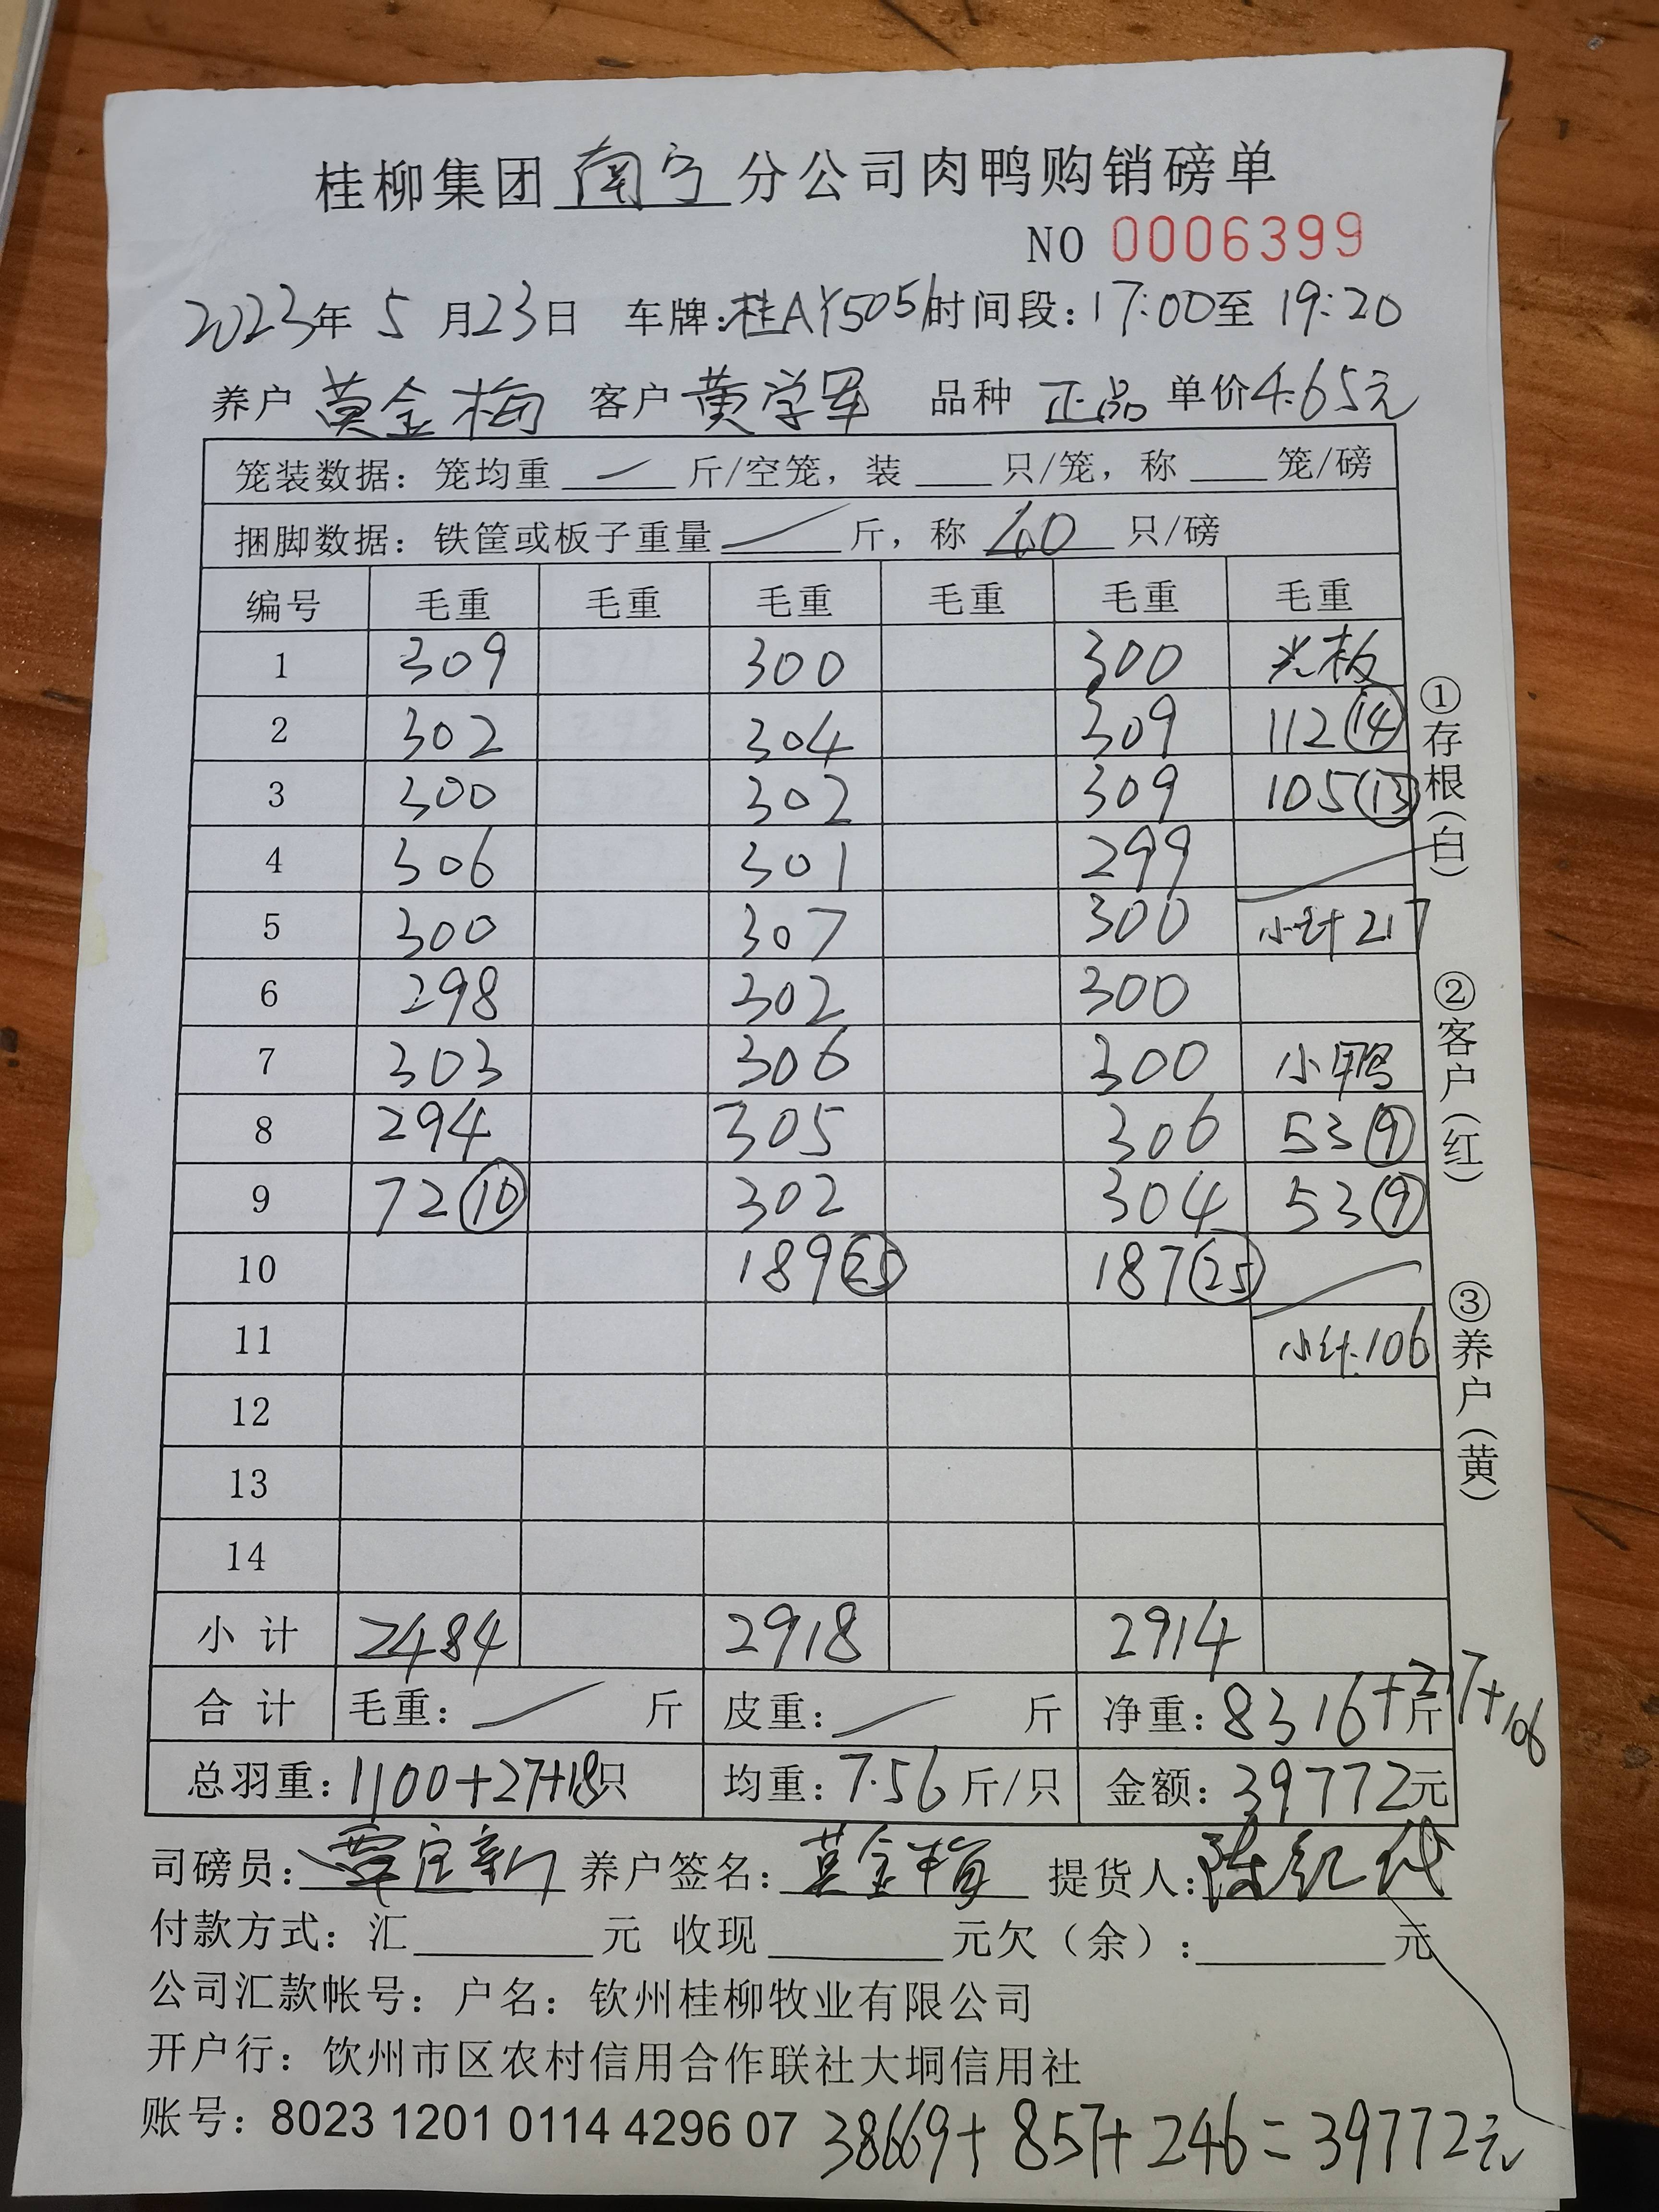 桂柳集团南宁分公司肉鸭购销磅单
NO 0006399
2023年 5 月23日 车牌:桂AY5051时间段:17:00至 19:20
养户 莫金梅 客户 黄学军 品种 正品 单价4.65元
笼装数据:笼均重 — 斤/空笼,装 只/笼,称 笼/磅
捆脚数据:铁筐或板子重量 — 斤,称 40 只/磅
编号 毛重 毛重 毛重 毛重 毛重 毛重
1 309 300 300 光板
2 302 304 309 112⑭
3 300 302 309 105⑬
4 306 301 299
5 300 307 300 小计217
6 298 302 300
7 303 306 300 小鸭
8 294 305 306 53⑨
9 72⑩ 302 304 53⑨
10 189㉕ 187㉕
11 小计:106
12
13
14
小计 2484 2918 2914
合计 毛重: — 斤 皮重: — 斤 净重:8316+217+106斤
总羽重:1100+27+18只 均重:7.56斤/只 金额:39772元
司磅员:覃定新 养户签名:莫金梅 提货人:陈红代
付款方式:汇 元 收现 元欠(余): 元
公司汇款帐号:户名:钦州桂柳牧业有限公司
开户行:饮州市区农村信用合作联社大垌信用社
账号:8023 1201 0114 4296 07 38669+857+246=39772元
①存根(白)
②客户(红)
③养户(黄)